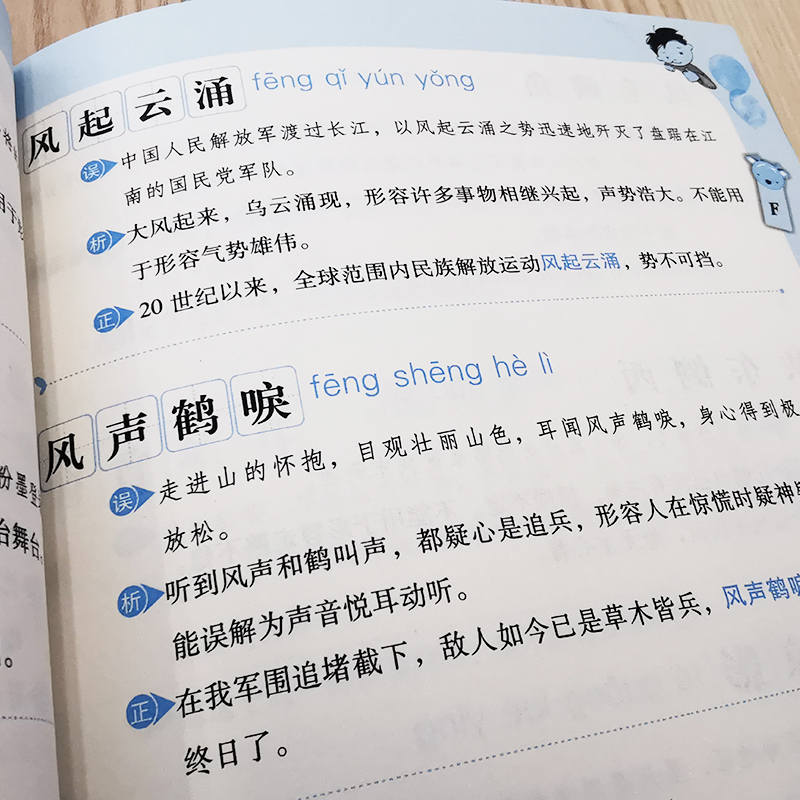 风起云涌 fēng qǐ yún yǒng
误 中国人民解放军渡过长江，以风起云涌之势迅速地歼灭了盘踞在江
南的国民党军队。
析 大风起来，乌云涌现，形容许多事物相继兴起，声势浩大。不能用
于形容气势雄伟。
正 20世纪以来，全球范围内民族解放运动风起云涌，势不可挡。
F
风声鹤唳 fēng shēng hè lì
误 走进山的怀抱，目观壮丽山色，耳闻风声鹤唳，身心得到极
放松。
析 听到风声和鹤叫声，都疑心是追兵，形容人在惊慌时疑神
能误解为声音悦耳动听。
正 在我军围追堵截下，敌人如今已是草木皆兵，风声鹤唳
终日了。
粉墨登
台舞台